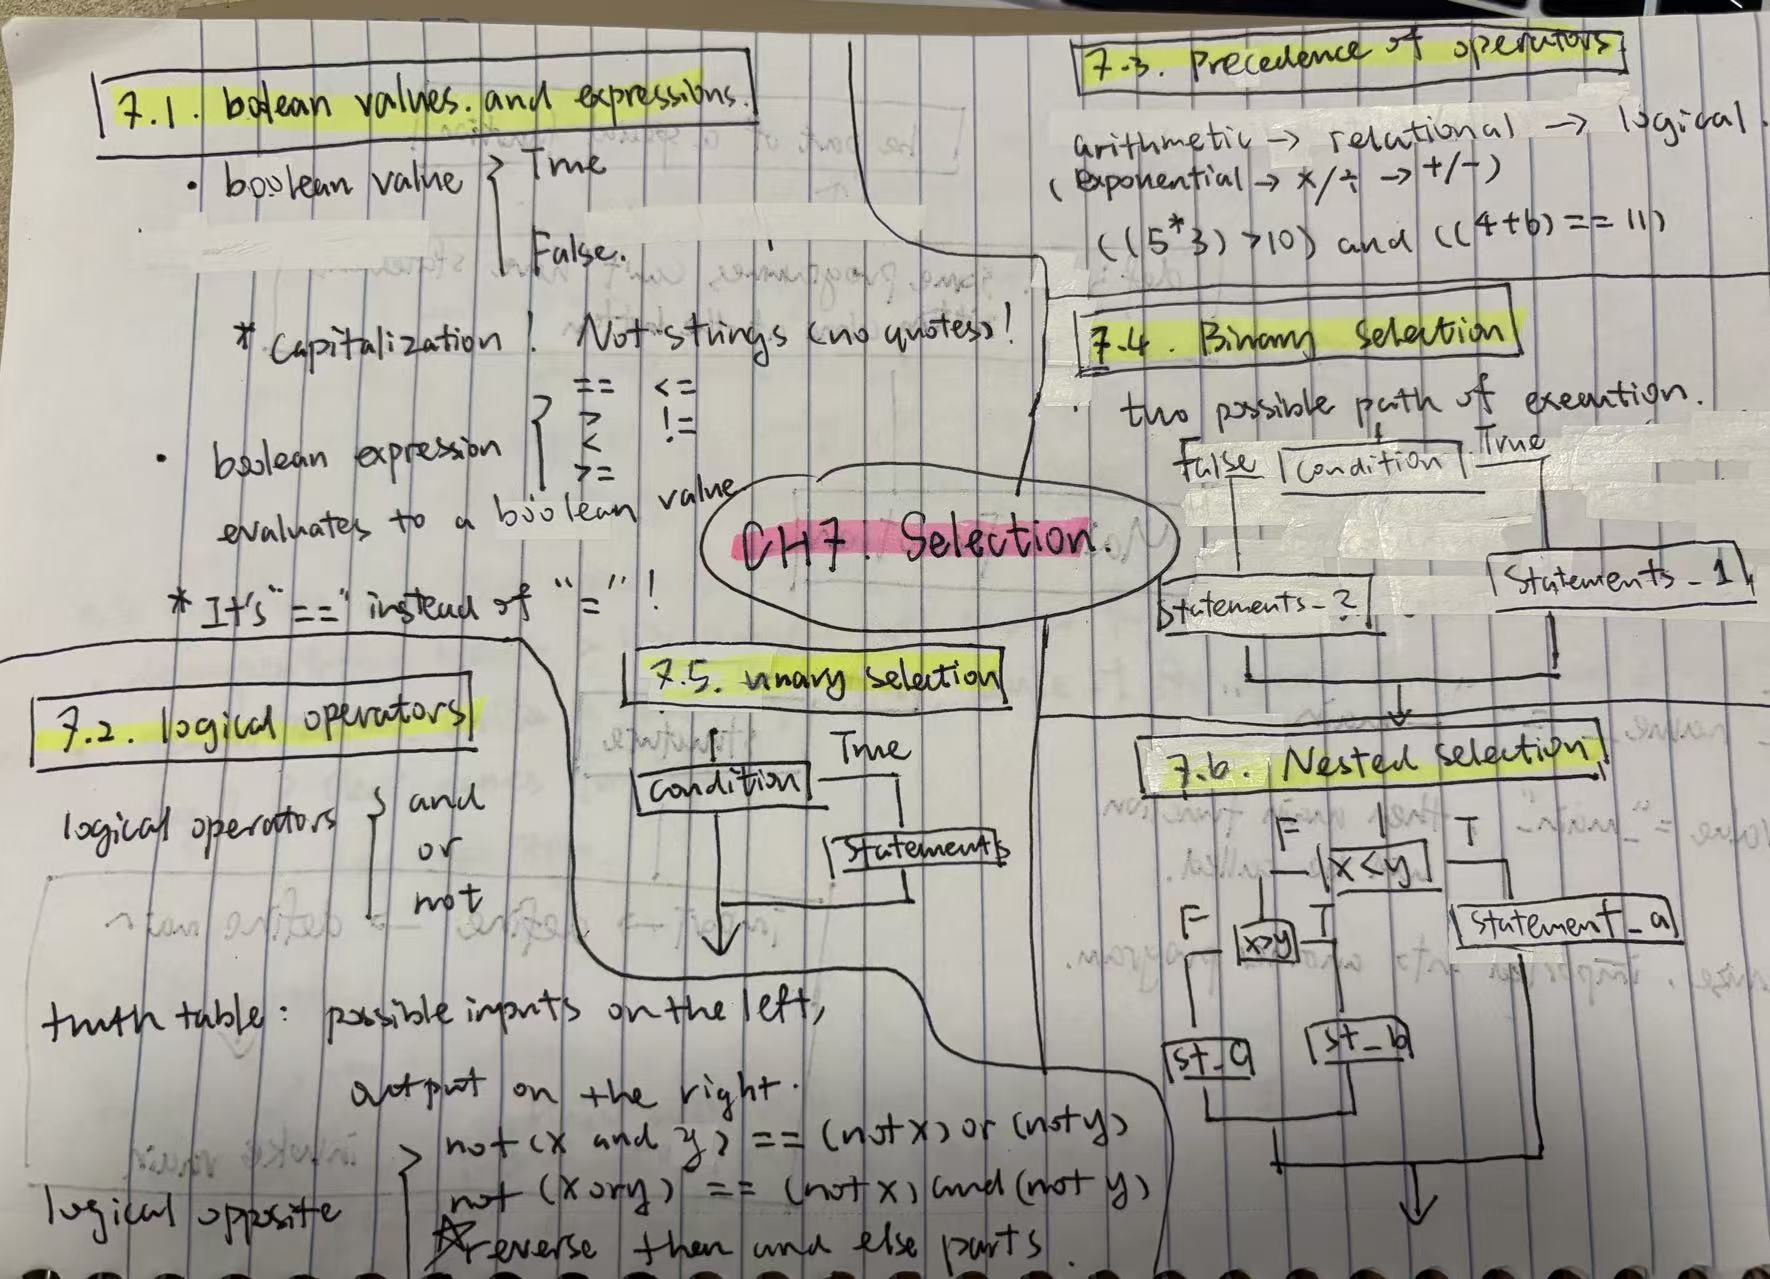 7.1. bolean values. and expressions.
• boolean value { True
False.
* Capitalization! Not strings (no quotes)!
• boolean expression { == <=
> !=
<
>=
evaluates to a boolean value
* It's "==" instead of "="!
7.2. logical operators
logical operators { and
or
not
truth table: possible inputs on the left,
output on the right.
logical opposite { not (x and y) == (not x) or (not y)
not (x or y) == (not x) and (not y)
☆ reverse then and else parts.
CH7: Selection.
7.3. Precedence of operators
arithmetic → relational → logical.
(Exponential → ×/÷ → +/-)
((5*3) > 10) and ((4+6) == 11)
7.4. Binary Selection
• two possible path of execution.
False Condition True
Statements_2 Statements_1
7.5. unary selection
Condition True
Statements
7.6. Nested selection
F x<y T
F x>y T statement_a
st_c st_b